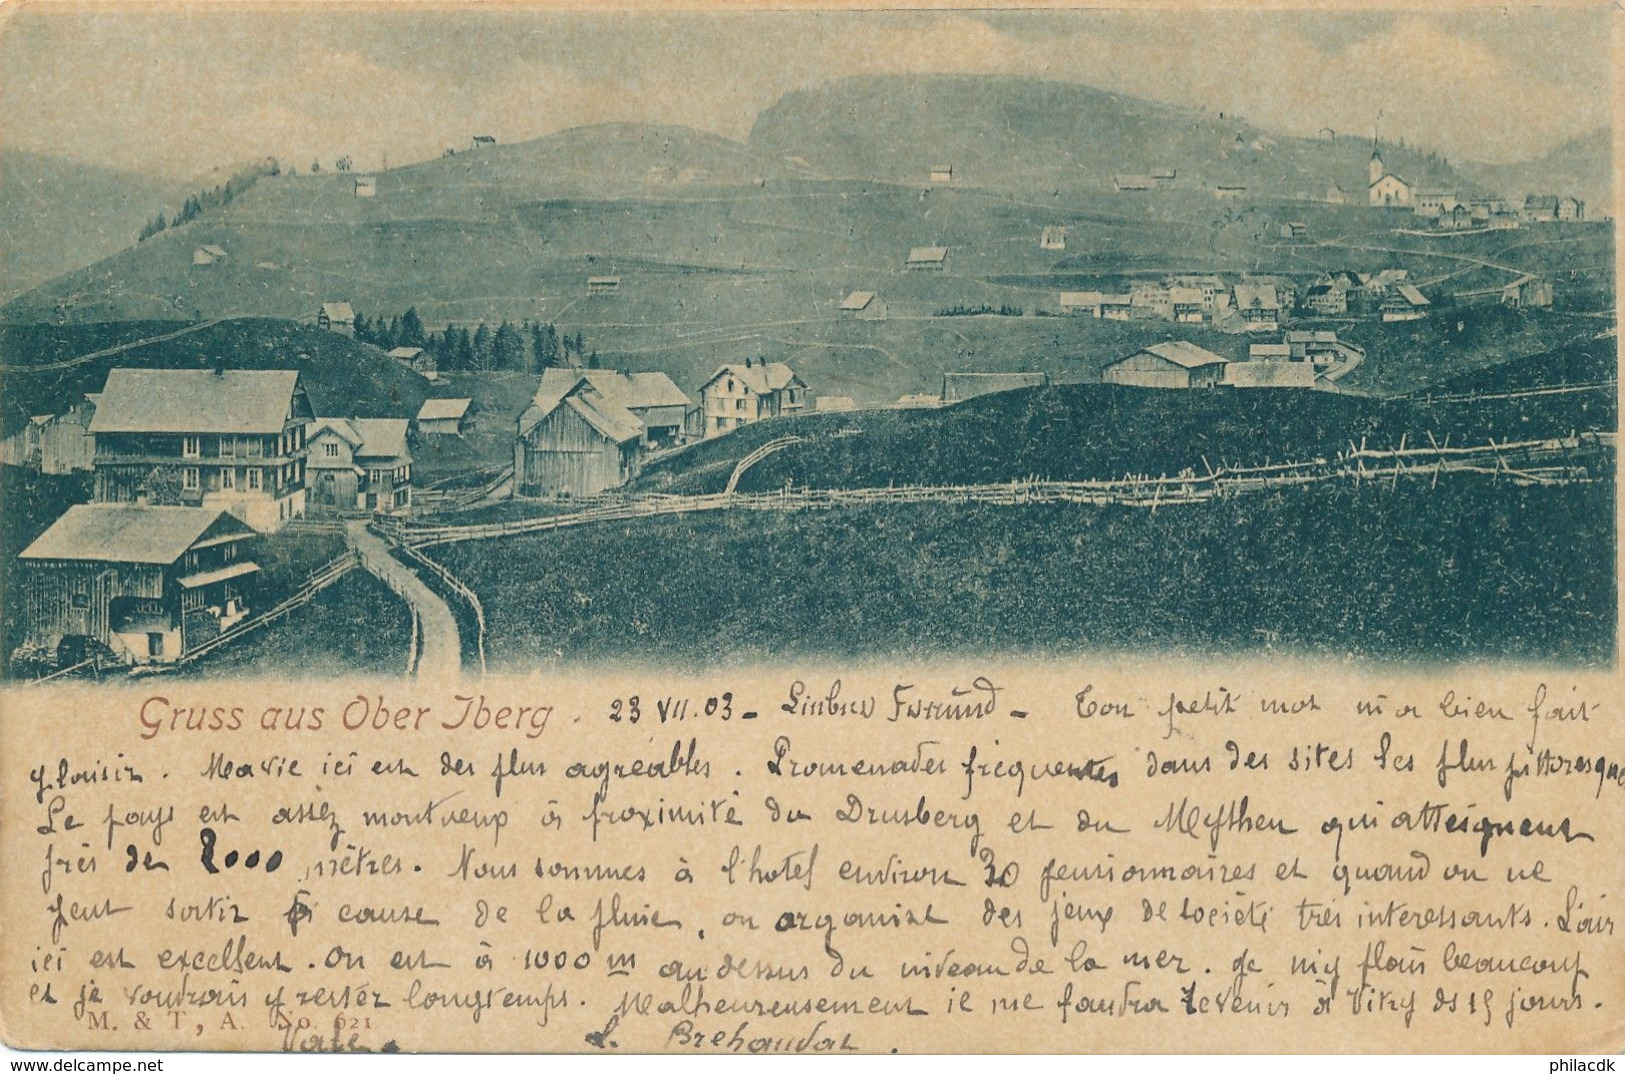 Gruss aus Ober Iberg . 23 VII. 03 - Lieber Freund - Ton petit mot m'a bien fait
plaisir. Ma vie ici est des plus agréables. Promenades fréquentes dans des sites les plus pittoresque
Le pays est assez montueux à proximité du Drusberg et du Mythen qui atteignent
près de 2000 mètres. Nous sommes à l'hotel environ 30 pensionnaires et quand on ne
peut sortir à cause de la pluie, on organise des jeux de société très interessants. L'air
ici est excellent. On est à 1000 m au dessus du niveau de la mer. Je m'y plais beaucoup
et je voudrais y rester longtemps. Malheureusement il me faudra revenir à Vitry ds 15 jours.
M. & T., A. No. 621
Vale. L.
philacdk
Last bid on www.delcampe.net